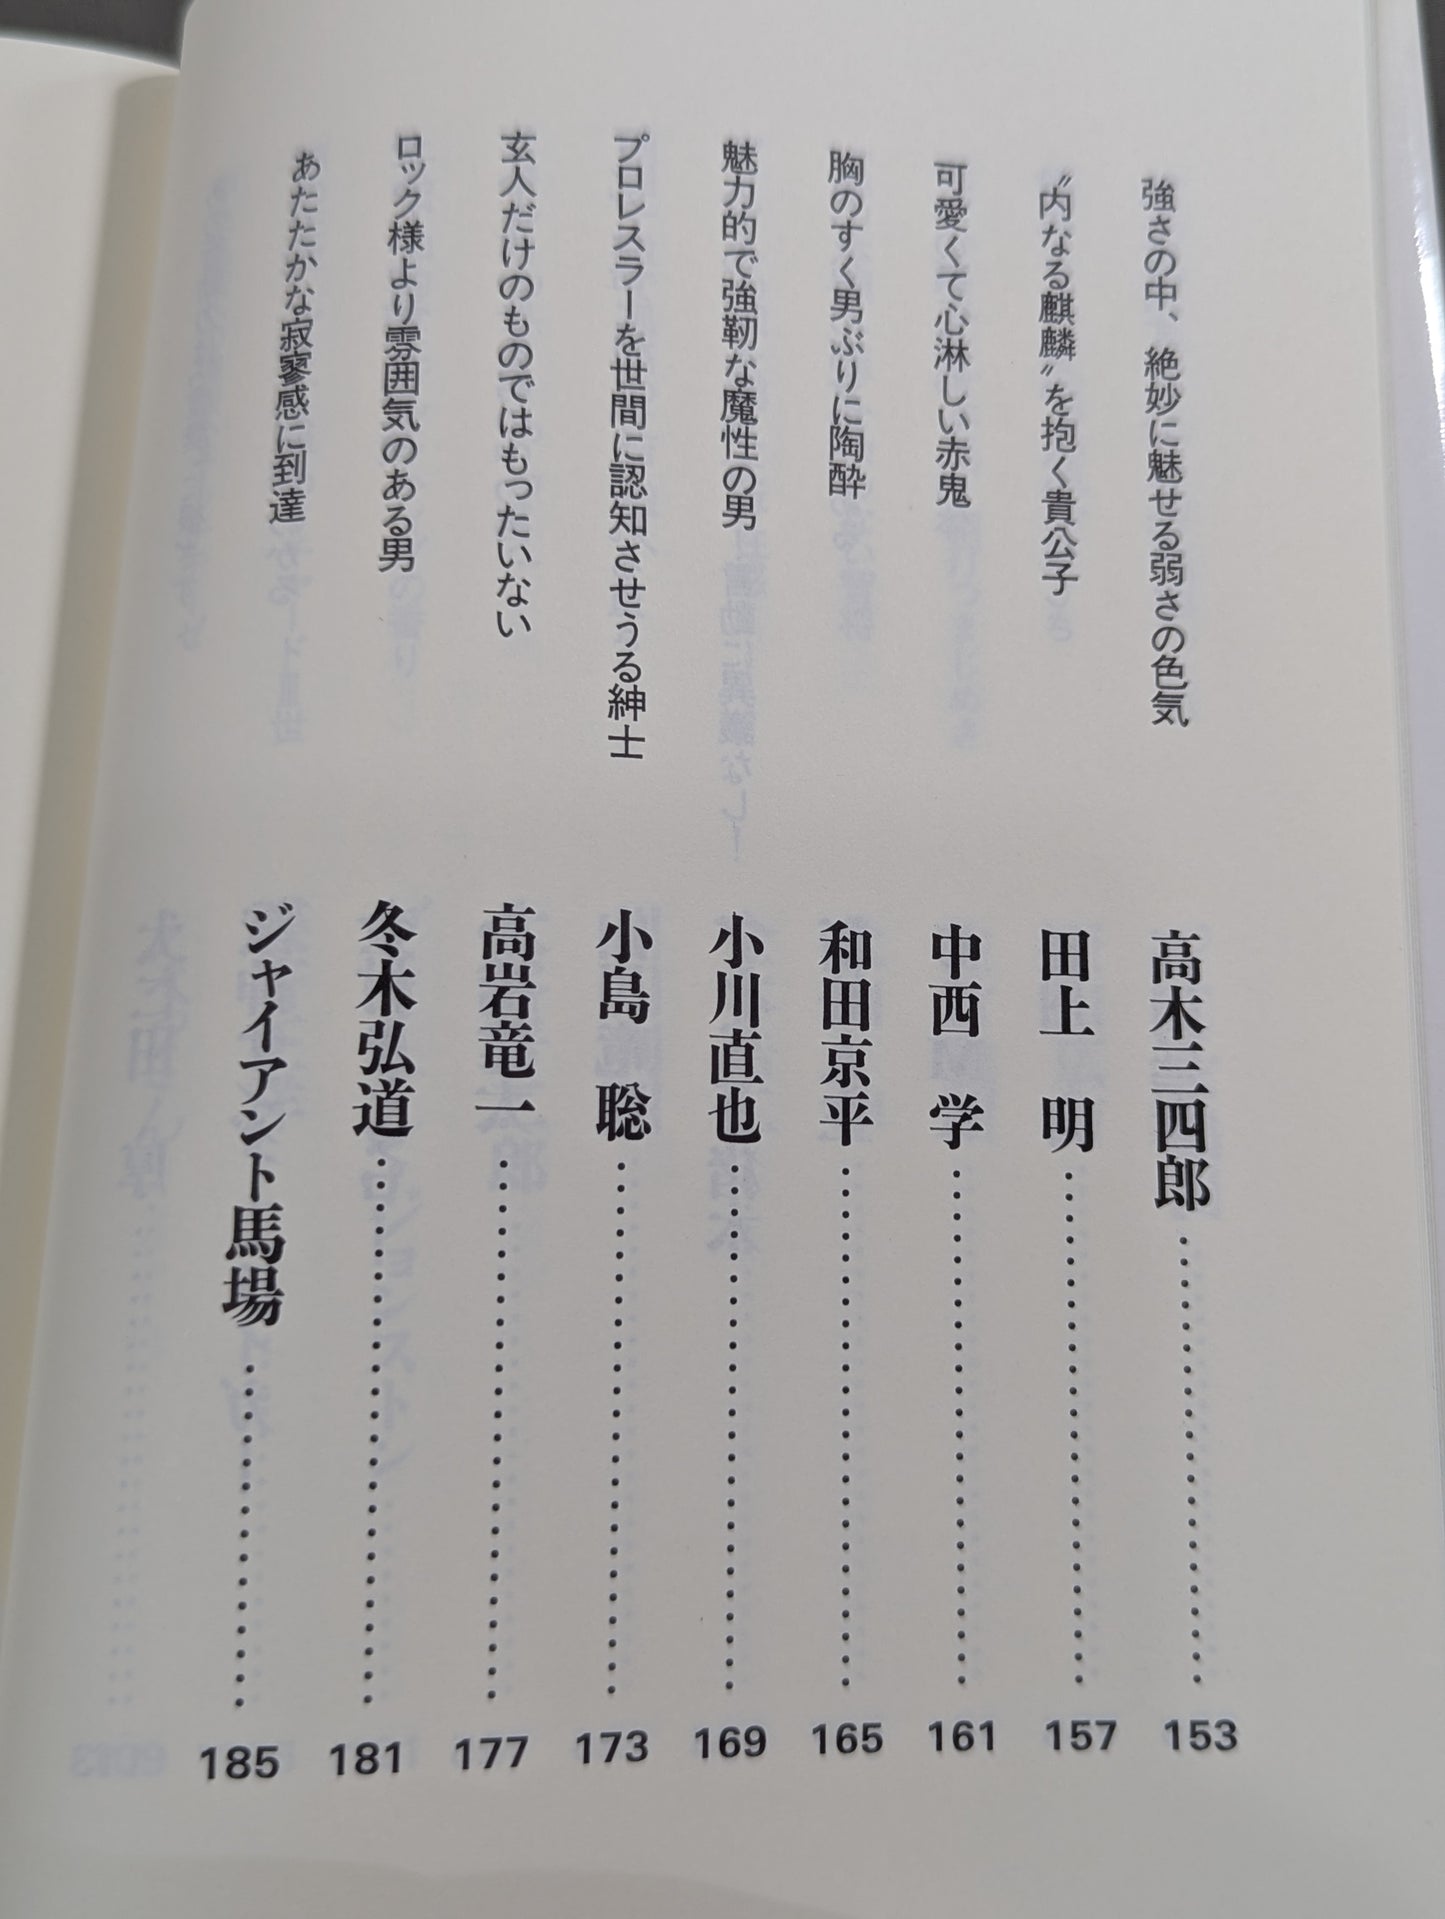 強さの中、絶妙に魅せる弱さの色気 高木三四郎……………………153
〝内なる麒麟〟を抱く貴公子 田上 明……………………157
可愛くて心淋しい赤鬼 中西 学……………………161
胸のすく男ぶりに陶酔 和田京平……………………165
魅力的で強靭な魔性の男 小川直也……………………169
プロレスラーを世間に認知させうる紳士 小島 聡……………………173
玄人だけのものではもったいない 高岩竜一……………………177
ロック様より雰囲気のある男 冬木弘道……………………181
あたたかな寂寥感に到達 ジャイアント馬場……………………185